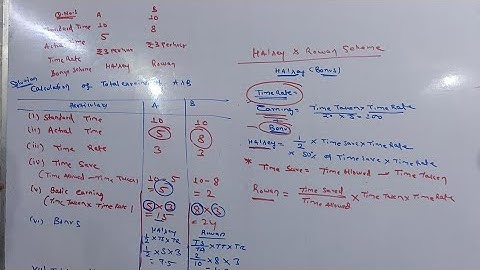 Q.No.1 A B
Standard Time 10 10
Actual Time 5 8
Time Rate ₹3 Per hour ₹3 Per hour
Bonus Scheme Halsey Rowan
Solution
Calculation of Total earnings of A & B
Particulars A B
(i) Standard Time 10 10
(ii) Actual Time 5 8
(iii) Time Rate 3 3
(iv) Time Save 10-5 10-8
(Time Allowed - Time Taken) = 5 = 2
(v) Basic Earning 5 × 3 8 × 3
(Time Taken × Time Rate) = 15 = 24
(vi) Bonus Halsey Rowan
1/2 × TS × TR TS/TA × TT × TR
1/2 × 5 × 3 2/10 × 8 × 3
= 7.5
Halsey & Rowan Scheme
Halsey (Bonus)
Time Rate =
Earning = Time Taken × Time Rate
20 × 5 = 100
+
Bonus
Halsey = 1/2 × Time Save × Time Rate
× 50% of Time Save × Time Rate
* Time Save = Time Allowed - Time Taken
Rowan = Time Saved / Time Allowed × Time Taken × Time Rate